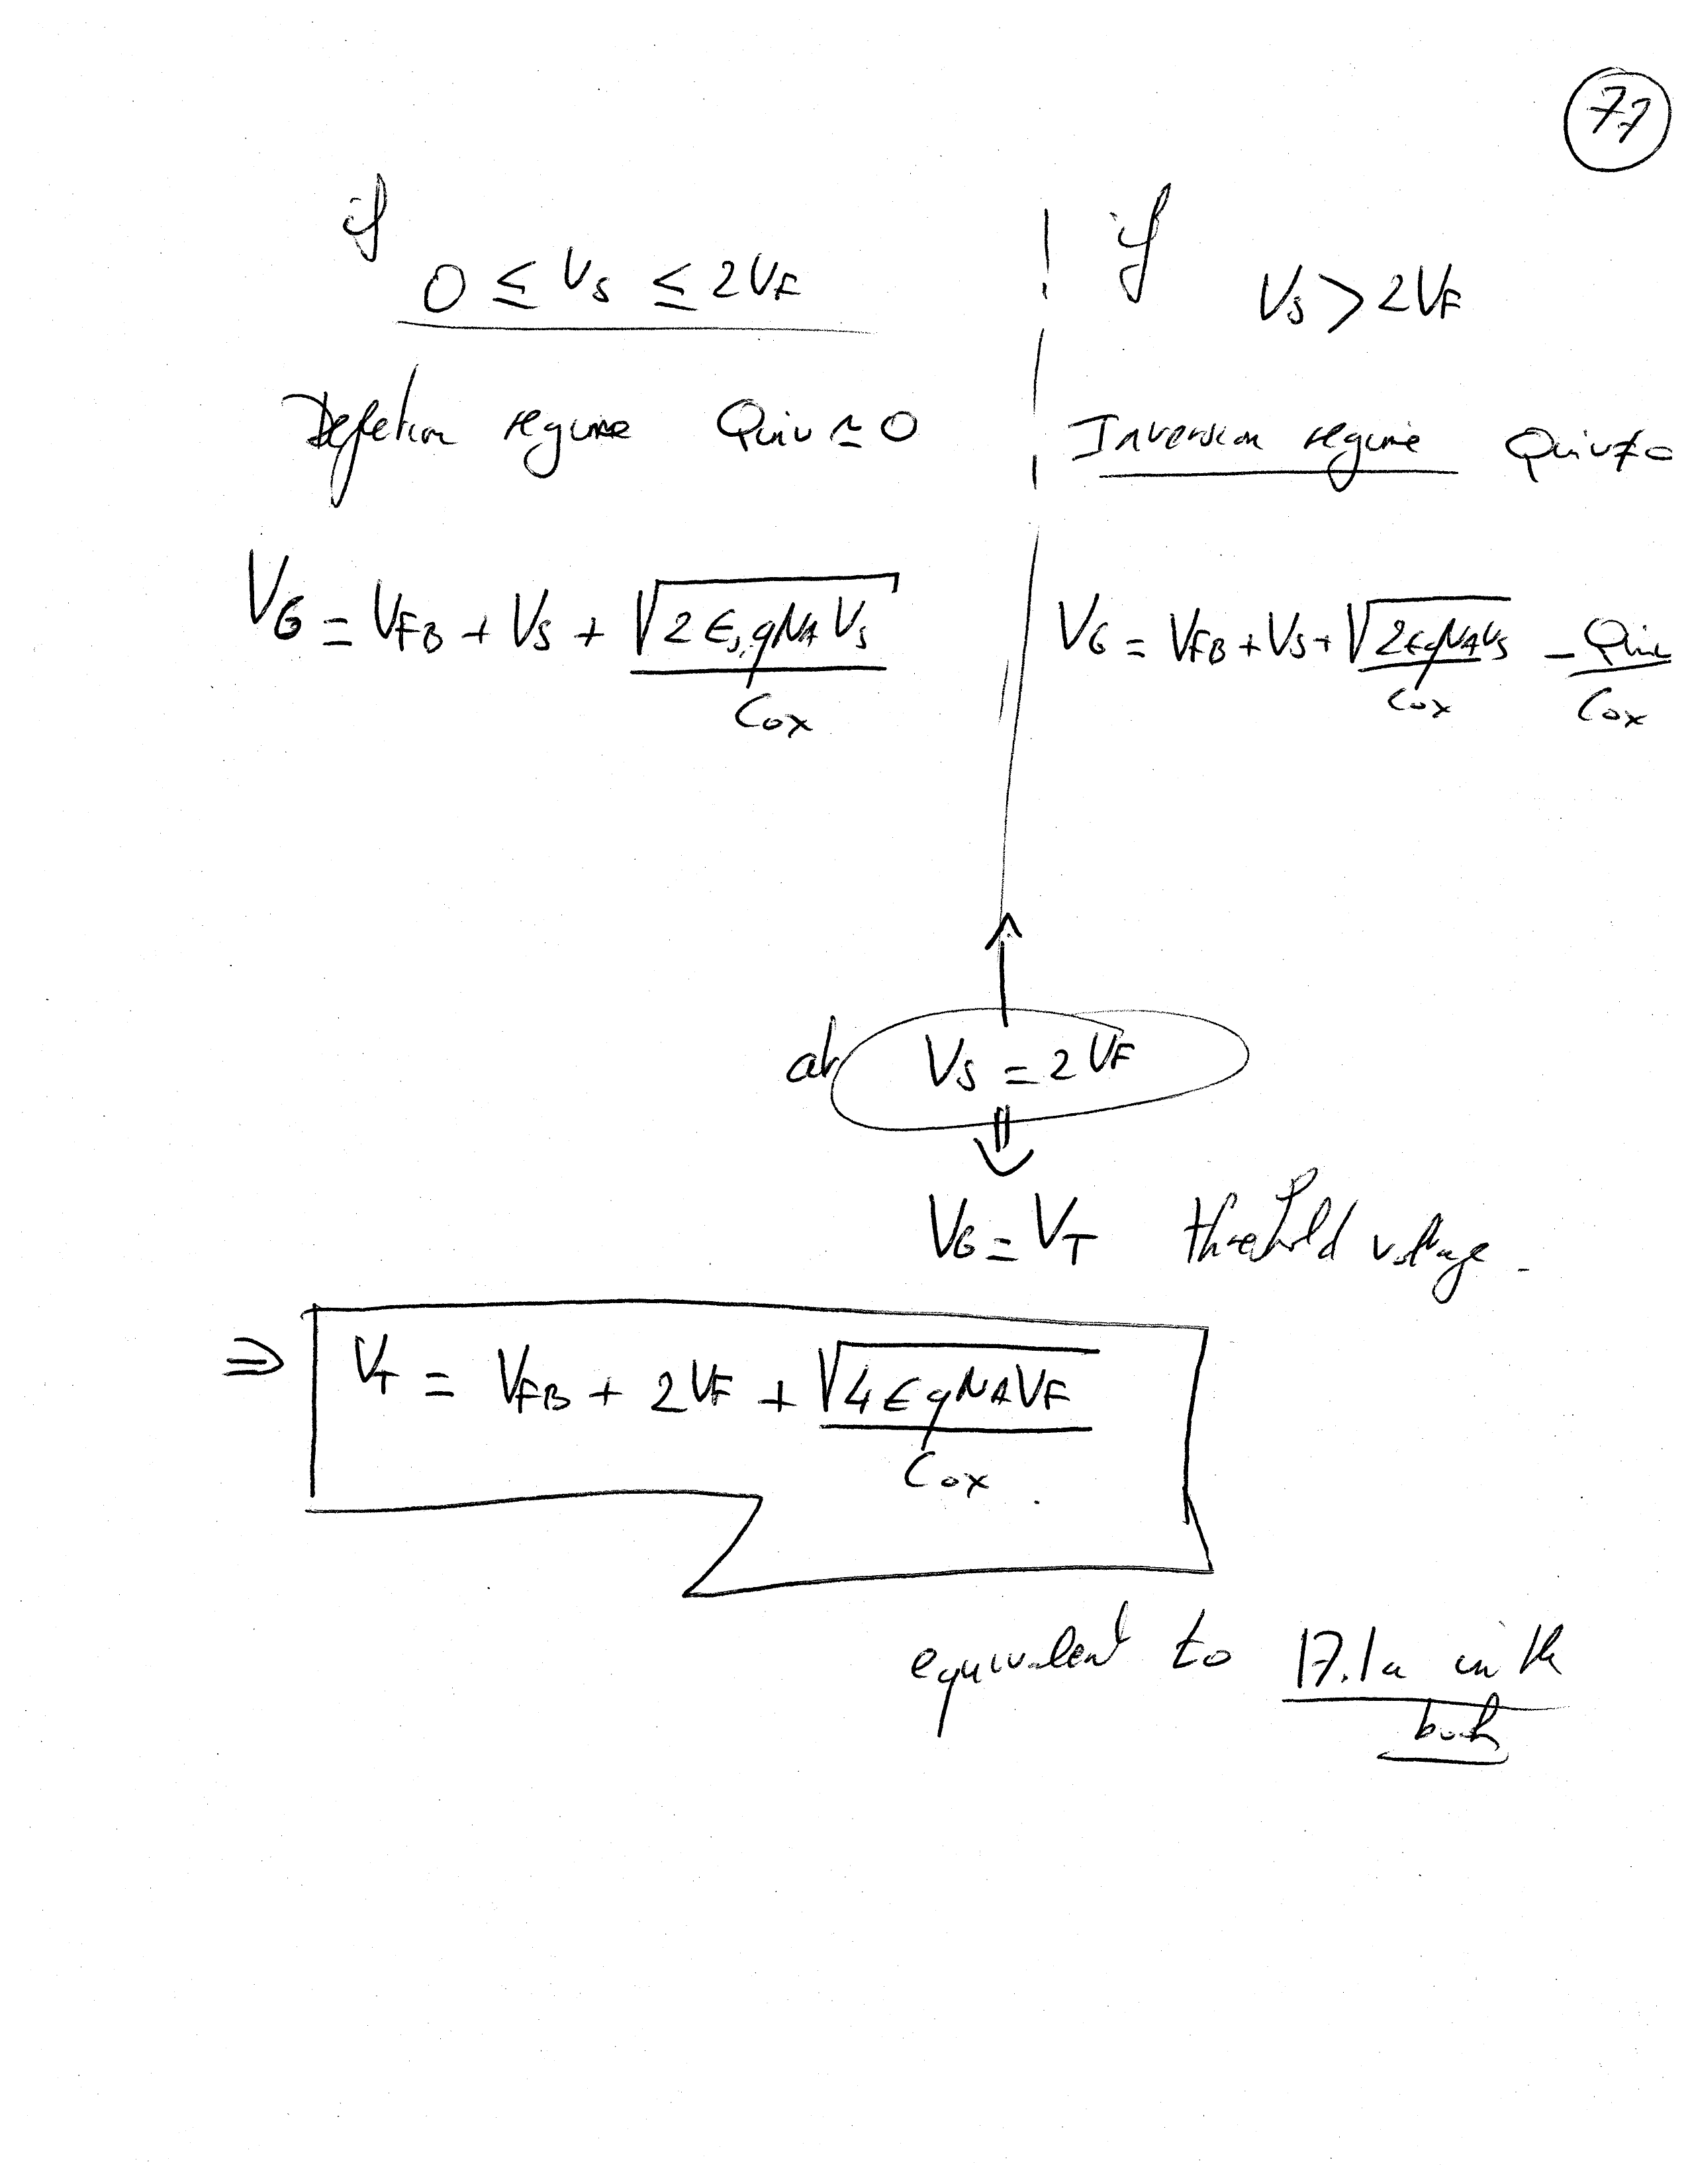 77
if
0 ≤ Vs ≤ 2VF
Depletion regime Qinv ≃ 0
VG = VFB + Vs + √(2 εs q NA Vs) / Cox
if
Vs > 2VF
Inversion regime Qinv ≠ 0
VG = VFB + Vs + √(2 ε q NA Vs) / Cox − Qinv / Cox
at Vs = 2VF
VG = VT threshold voltage.
⇒ VT = VFB + 2VF + √(4 ε q NA VF) / Cox
equivalent to 17.1a in the
book